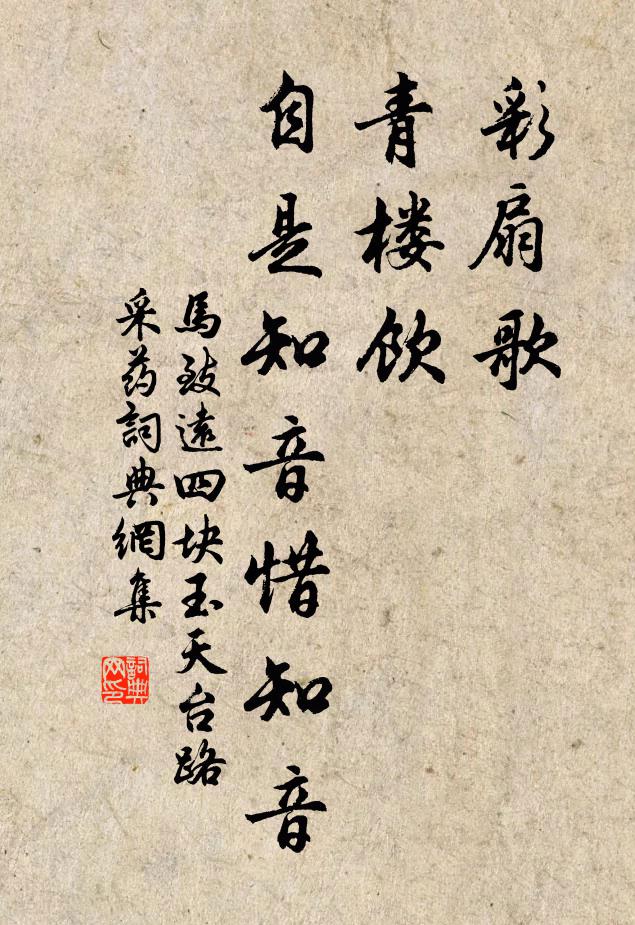 彩扇歌
青楼饮
自是知音惜知音
馬致遠四块玉天台路
采药詞典網集
詞典
网印